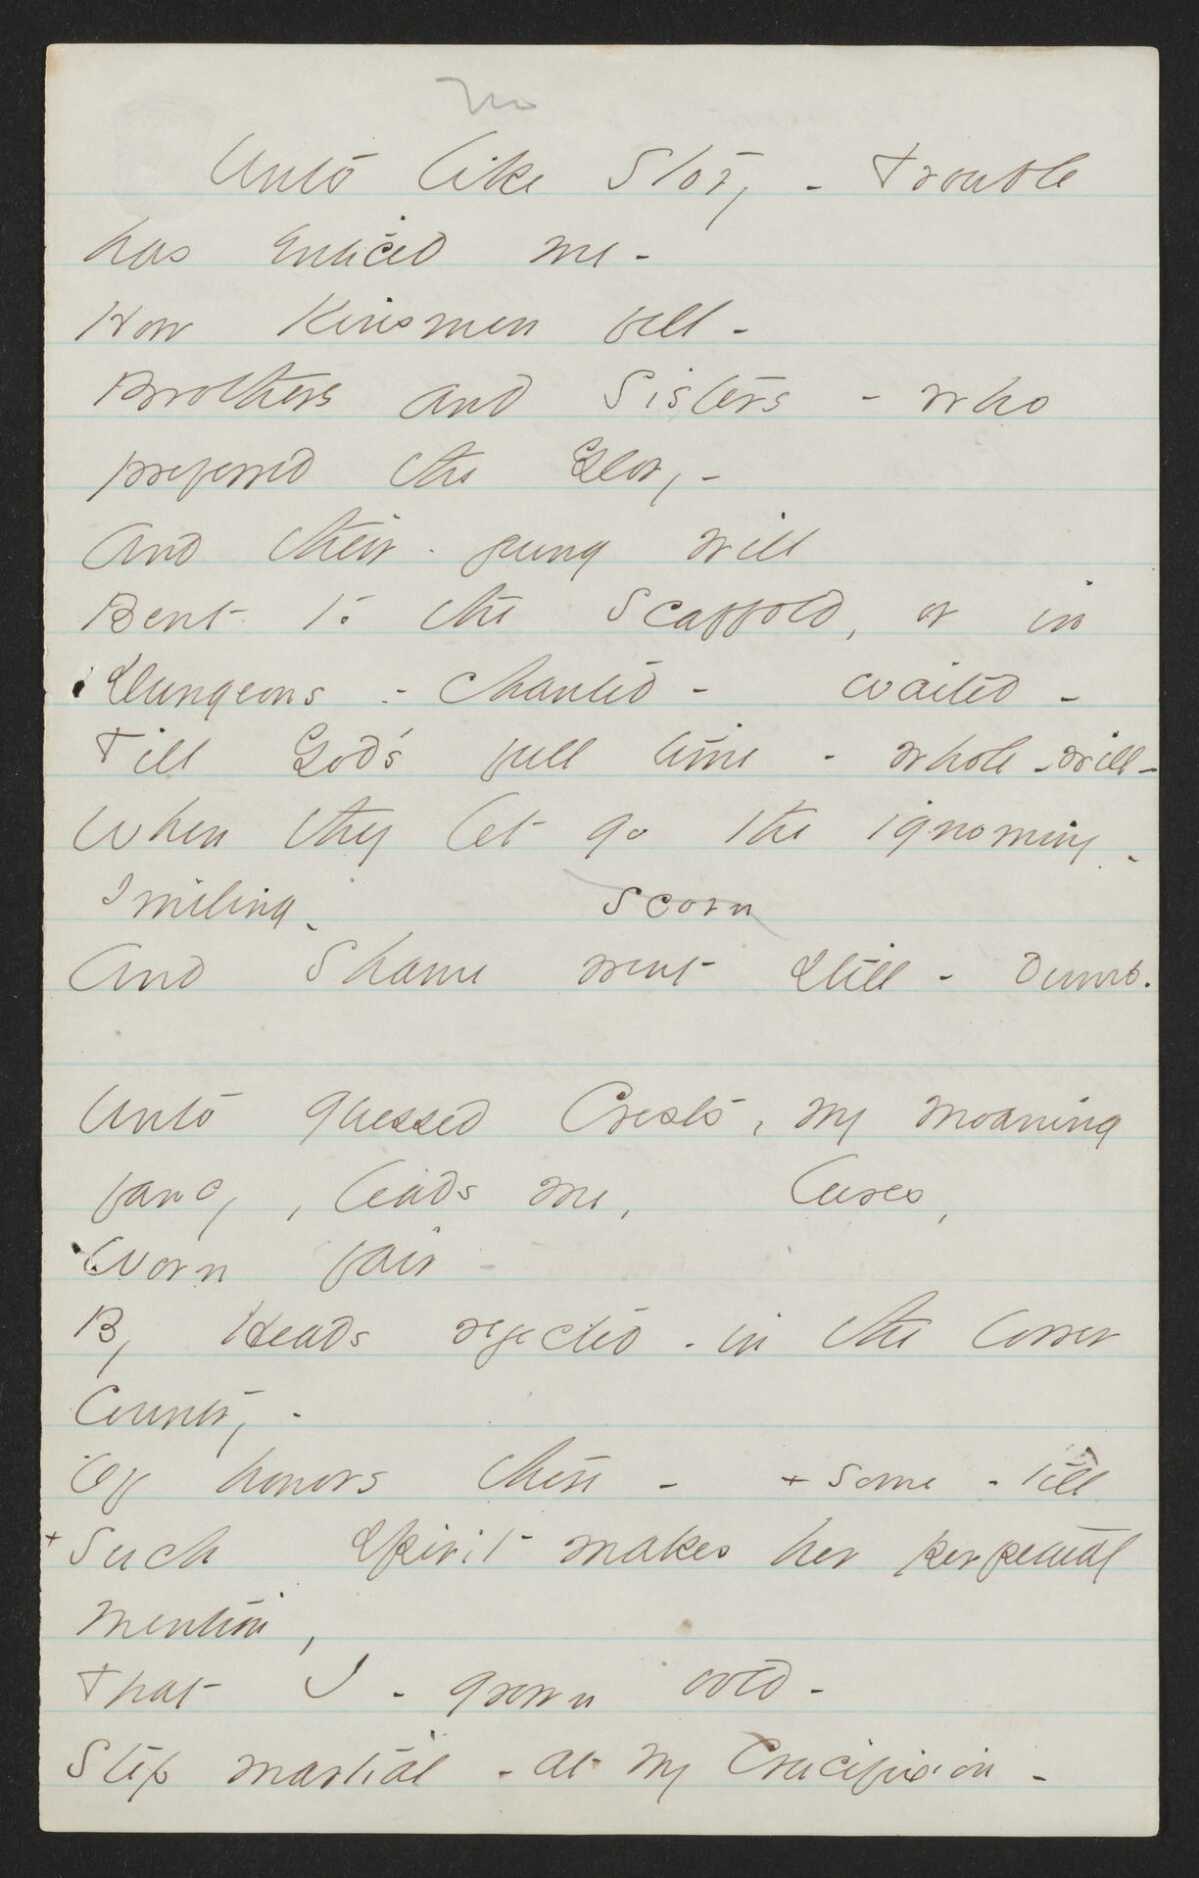 No
Unto like Story - Trouble
has enticed me -
How Kinsmen fell -
Brothers and Sisters - who
preferred the Glory -
And their young will
Bent to the Scaffold, or in
Dungeons - chanted - waited -
Till God's full time - whole - will -
When they let go the ignominy -
smiling - Scorn
And Shame went Still - Dumb.
Unto guessed Crests, my moaning
fancy, leads me, lures,
Worn fair -
By Heads rejected - in the lower
County -
Of honors there - + some - till
+ Such Spirit makes her perpetual
mention,
That I - grown bold -
Step martial - at my Crucifixion -